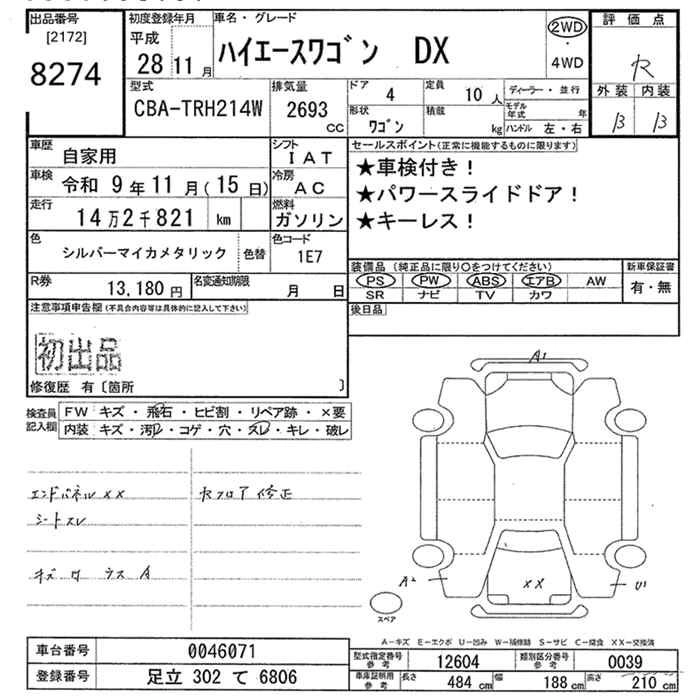 出品番号
[2172]
8274
初度登録年月
平成
28 11月
車名・グレード
ハイエースワゴン DX
2WD
・
4WD
評価点
R
外装 内装
B B
型式
CBA-TRH214W
排気量
2693
cc
ドア
4
定員
10人
ディーラー・並行
形状
ワゴン
積載
kg
モデル年式 年
ハンドル 左・右
車歴
自家用
シフト
IAT
車検
令和 9年11月(15日)
冷房
AC
走行
14万2千821 km
燃料
ガソリン
色
シルバーマイカメタリック
色替
色コード
1E7
R券
13,180円
名変通知期限
月 日
セールスポイント(正常に機能するものに限ります)
★車検付き!
★パワースライドドア!
★キーレス!
装備品 (純正品に限り○をつけてください)
新車保証書
PS PW ABS エアB AW
SR ナビ TV カワ
有・無
後日品
注意事項申告欄(不具合内容等は具体的に記入して下さい)
初出品
修復歴 有〔箇所 〕
検査員記入欄
FW キズ・飛石・ヒビ割・リペア跡・×要
内装 キズ・汚レ・コゲ・穴・スレ・キレ・破レ
エンドパネルXX
シートスレ
セフロア修正
A1
A2
XX
U1
スペア
A-キズ E-エクボ U-凹み W-補修跡 S-サビ C-腐食 XX-交換済
車台番号 0046071
登録番号 足立 302 て 6806
型式指定番号参考 12604
類別区分番号参考 0039
車庫証明用参考 長さ 484cm 幅 188cm 高さ 210cm